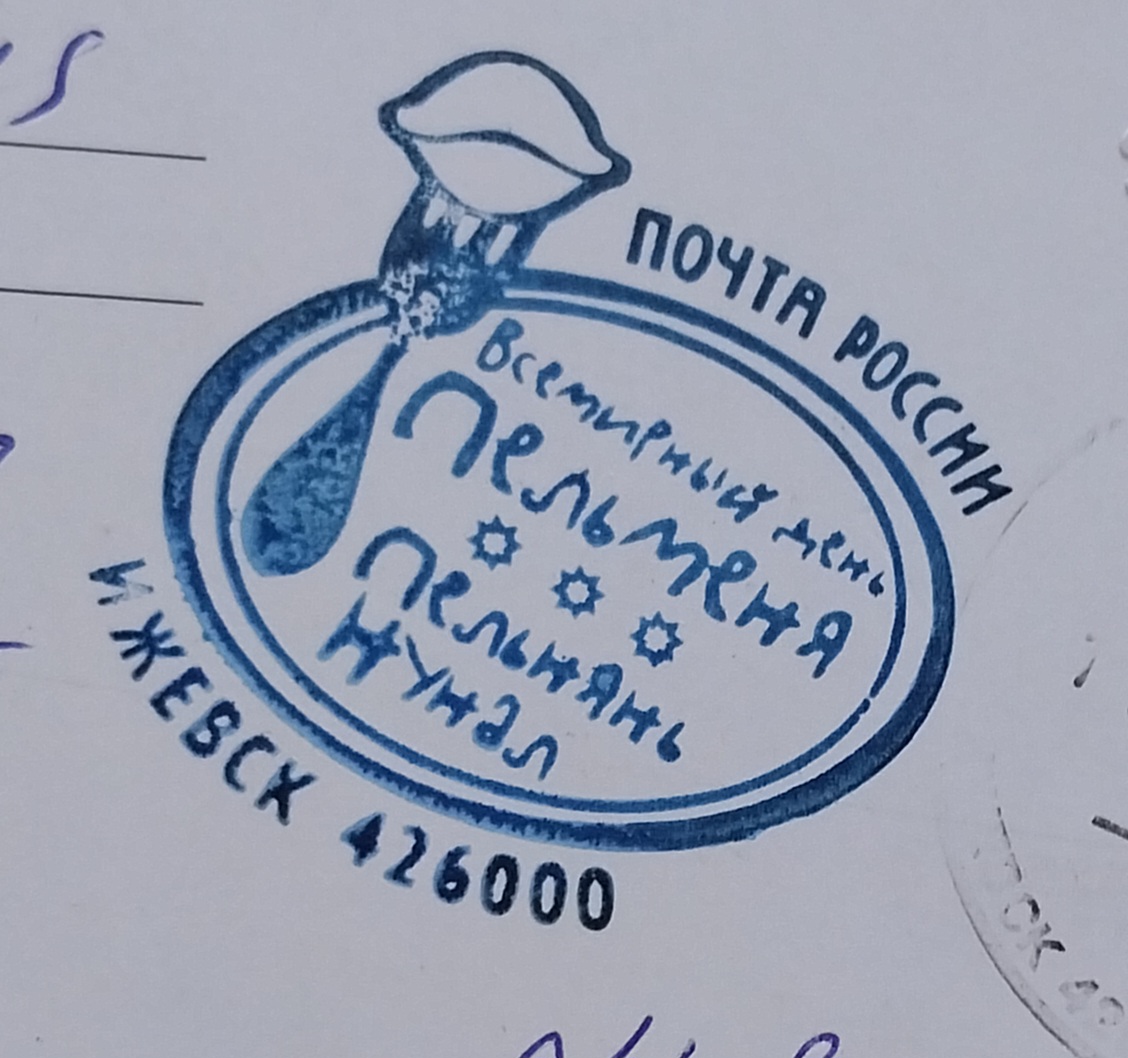 ПОЧТА РОССИИ
Всемирный день
Пельменя
Пельнянь
нунал
ИЖЕВСК 426000